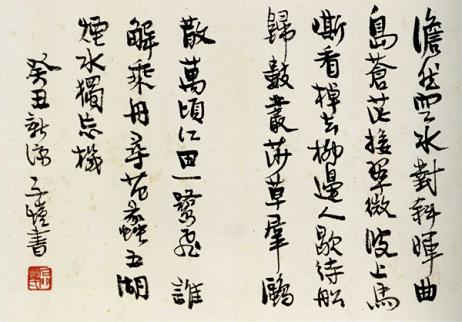 澹然空水對斜暉曲
島蒼茫接翠微波上馬
嘶看棹去柳邊人歇待船
歸數叢莎草羣鷗
散萬頃江田一鷺飛誰
解乘舟尋范蠡五湖
煙水獨忘機
癸丑新涼子愷書